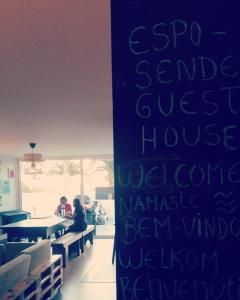 ESPO-
SENDE
GUEST
HOUSE
WELCOME
NAMASTE
BEM-VINDO
WELKOM
BENVENUT